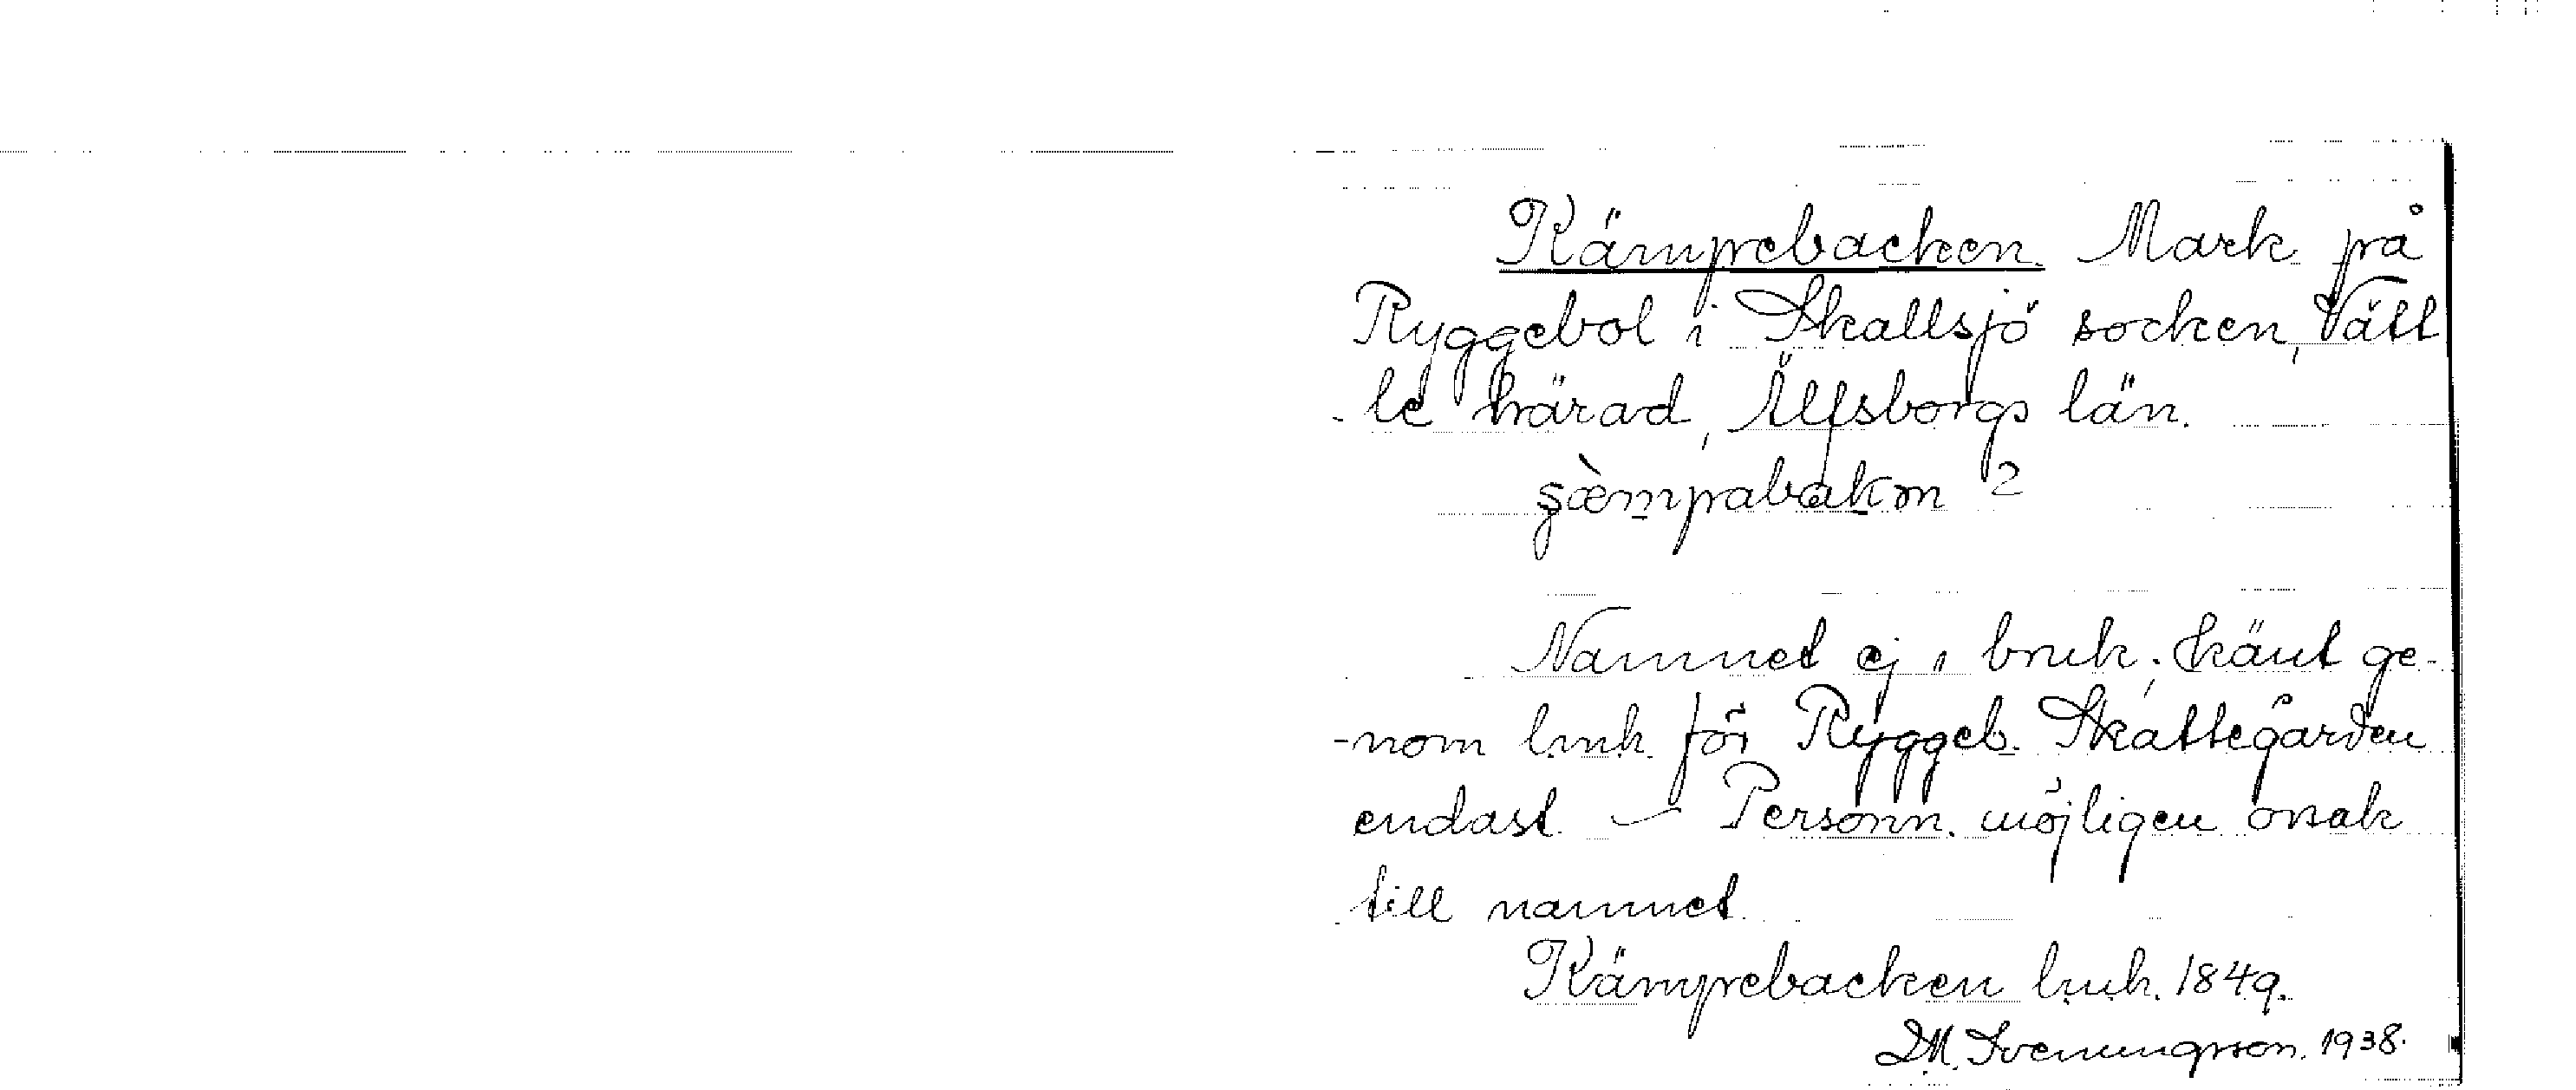 Kämpebacken. Mark på
Ryggebol i Skallsjö socken, Vätt
le härad, Älfsborgs län.
Namnet ej i bruk; känt ge-
-nom lmk för Ryggeb. Skattegården
endast — Personn. möjligen orsak
till namnet.
Kämpebacken lmk. 1849.
Svenungsson. 1938.